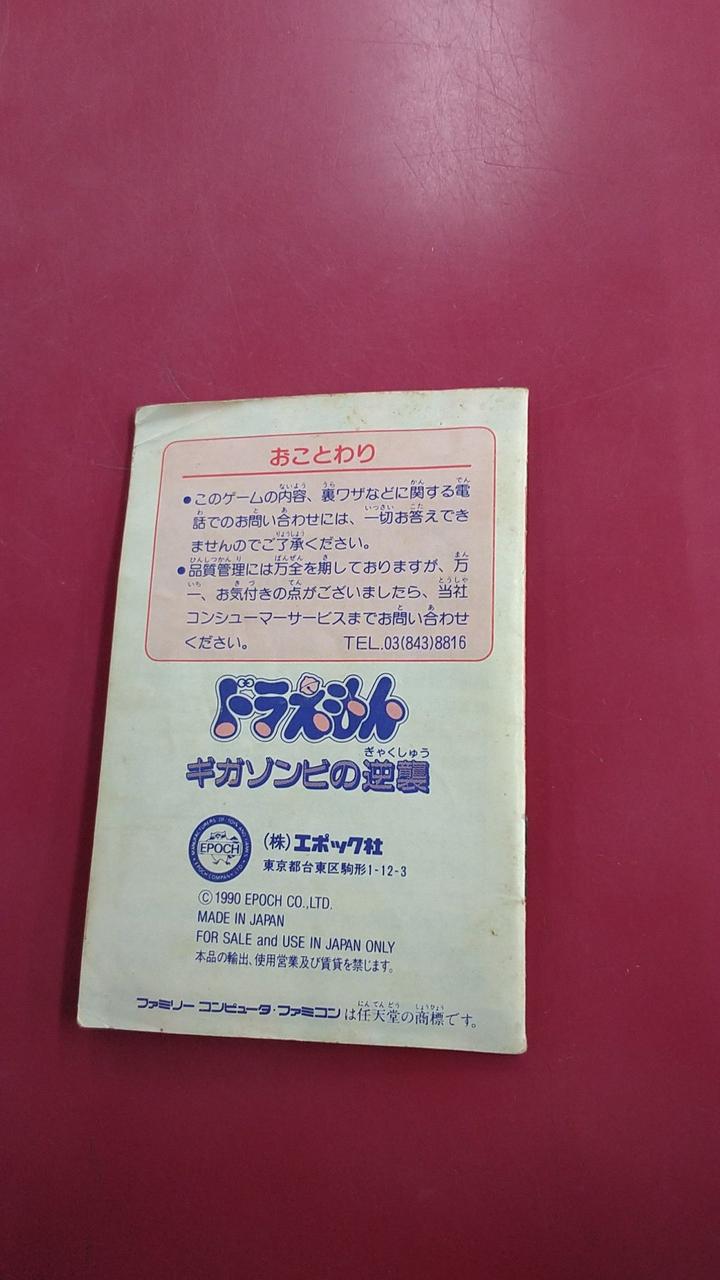 おことわり
●このゲームの内容、裏ワザなどに関する電
話でのお問い合わせには、一切お答えでき
ませんのでご了承ください。
●品質管理には万全を期しておりますが、万
一、お気付きの点がございましたら、当社
コンシューマーサービスまでお問い合わせ
ください。 TEL.03(843)8816
ドラえもん
ギガゾンビの逆襲
EPOCH
(株)エポック社
東京都台東区駒形1-12-3
©1990 EPOCH CO.,LTD.
MADE IN JAPAN
FOR SALE and USE IN JAPAN ONLY
本品の輸出、使用営業及び賃貸を禁じます。
ファミリーコンピュータ・ファミコンは任天堂の商標です。